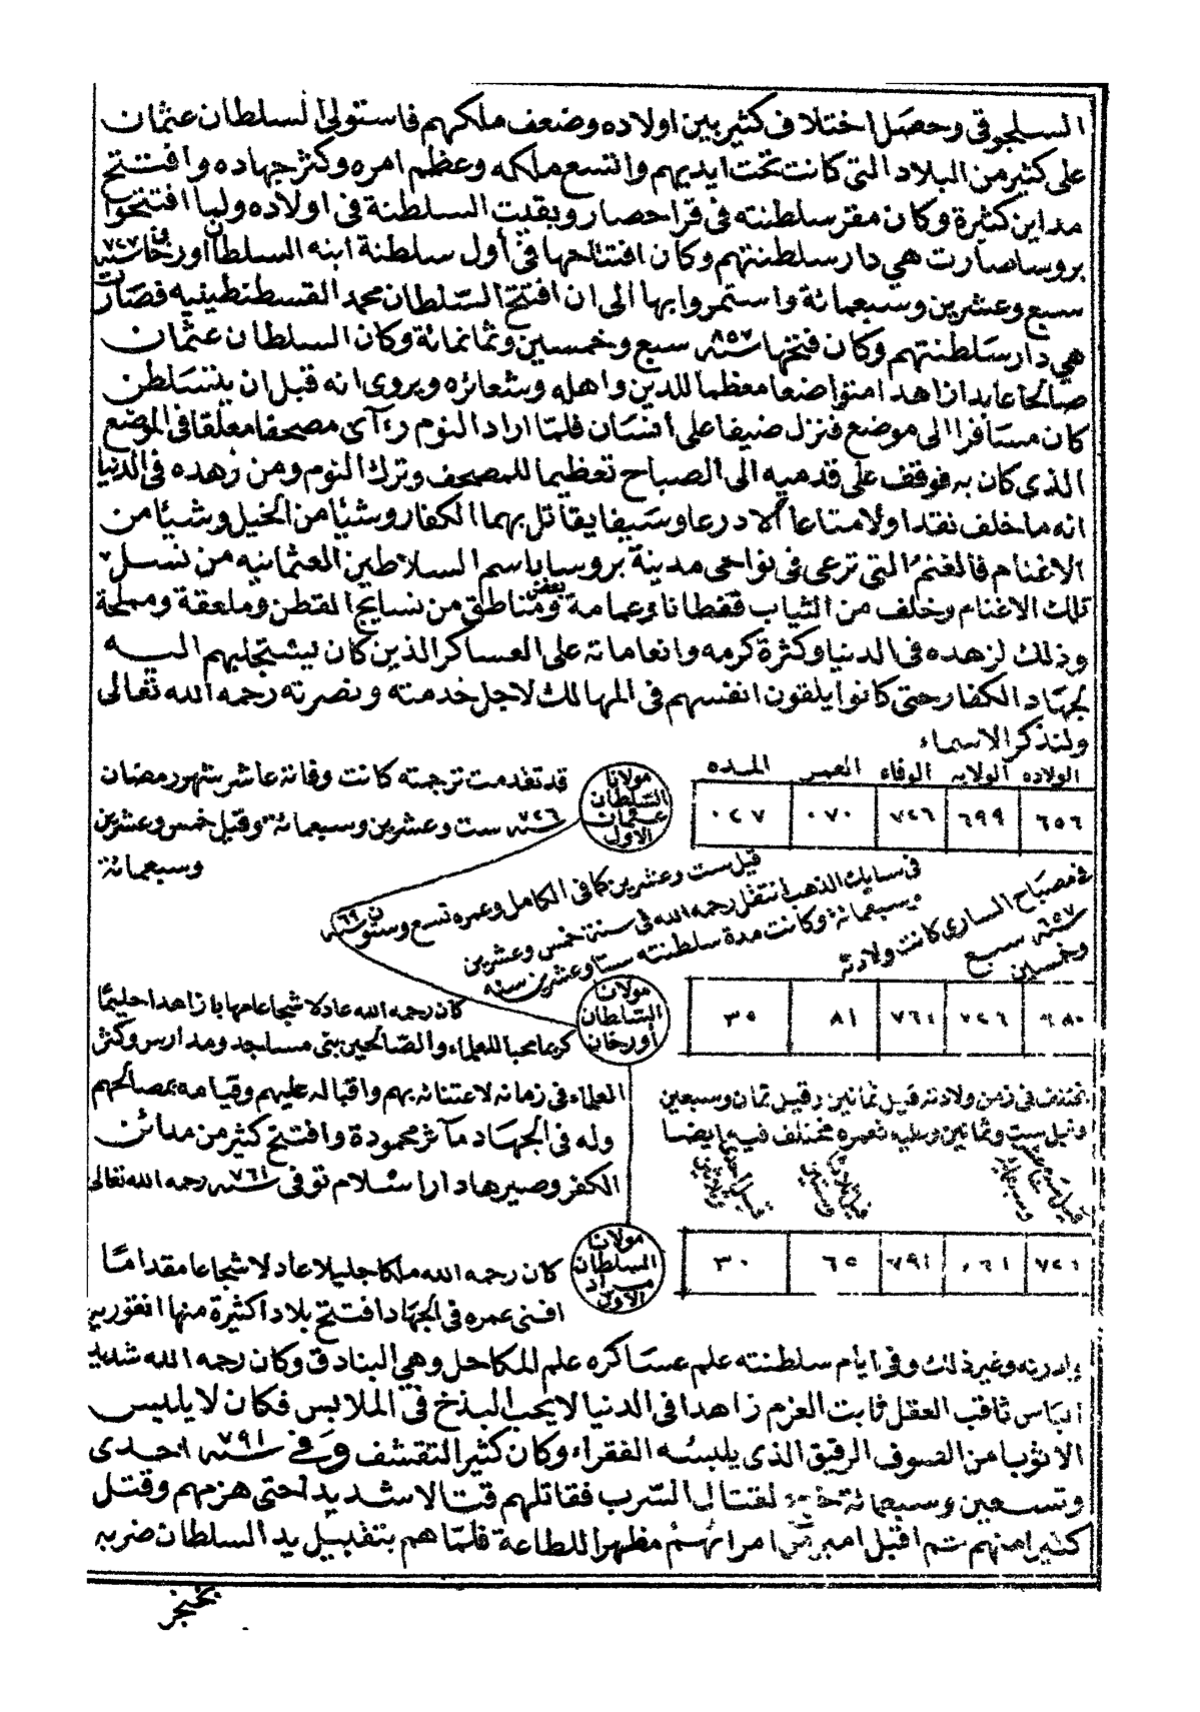 السلجوقى وحصل اختلاف كثير بين اولاده وضعف ملكهم فاستولى السلطان عثمان
على كثير من البلاد التى كانت تحت ايديهم واتسع ملكه وعظم امره وكثر جهاده وافتتح
مداين كثيرة وكان مقر سلطنته فى قرا حصار وبقيت السلطنة فى اولاده ولما افتتحوا
بروسا صارت هى دار سلطنتهم وكان افتتاحها فى أول سلطنة ابنه السلطان اورخان سنة ٧٢٧
سبع وعشرين وسبعمائة واستمروا بها الى ان افتتح السلطان محمد القسطنطينيه فصارت
هى دار سلطنتهم وكان فتحها سنة ٨٥٧ سبع وخمسين وثمانمائة وكان السلطان عثمان
صالحا عابدا زاهدا متواضعا معظما للدين واهله وشعائره ويروى انه قبل ان يتسلطن
كان مسافرا الى موضع فنزل ضيفا على أنسان فلما اراد النوم رءآى مصحفا معلقا فى الموضع
الذى كان به فوقف على قدميه الى الصباح تعظيما للمصحف وترك النوم ومن زهده فى الدنيا
انه ما خلف نقدا ولا متاعا الا درعا وسيفا يقاتل بهما الكفار وشيئا من الخيل وشيئا من
الاغنام فالغنم التى ترعى فى نواحى مدينة بروسا باسم السلاطين العثمانيه من نسل
تلك الاغنام وخلف من الثياب قفطانا وعمامة وبعض مناطق من نسايج القطن وملعقة ومملحة
وذلك لزهده فى الدنيا وكثرة كرمه وانعاماته على العساكر الذين كان يستجلبهم اليه
لجهاد الكفار حتى كانوا يلقون انفسهم فى المهالك لاجل خدمته ونصرته رحمه الله تعالى
ولنذكر الاسماء
الولاده الولايه الوفاء العمر المده
٦٥٦ ٦٩٩ ٧٢٦ ٠٧٠ ٠٢٧
مولانا السلطان عثمان الاول
قد تقدمت ترجمته كانت وفاته عاشر شهر رمضان
سنة ٧٢٦ ست وعشرين وسبعمائة وقيل خمس وعشرين
وسبعمائة
قيل ست وعشرين كما فى الكامل وعمره تسع وستون سنة ٦٩
فى سبايك الذهب انتقل رحمه الله فى سنة خمس وعشرين
وسبعمائة وكانت مدة سلطنته ستا وعشرين سنه
فى مصباح السارى كانت ولادته
سنة ٦٥٧ سبع
وخمسين
٦٨٠ ٧٢٦ ٧٦١ ٨١ ٣٥
مولانا السلطان أورخان
كان رحمه الله عادلا شجاعا مهابا زاهدا حليما
كريما محبا للعلماء والصالحين بنى مساجد ومدارس وكثر
العلماء فى زمانه لاعتنائه بهم واقباله عليهم وقيامه بمصالحهم
وله فى الجهاد مآثر محمودة وافتتح كثير من مدائن
الكفر وصيرها دار اسلام توفى سنة ٧٦١ رحمه الله تعالى
يختلف فى زمن ولادته قيل ثمانين وقيل ثمان وسبعين
وقيل ست وثمانين وعليه فعمره مختلف فيه ايضا
٧٢٦ ٧٦١ ٧٩١ ٦٥ ٣٠
مولانا السلطان مراد الاول
كان رحمه الله ملكا جليلا عادلا شجاعا مقداما
افنى عمره فى الجهاد افتتح بلادا كثيرة منها انقوريه
وادرنه وغير ذلك وفى ايام سلطنته علم عساكره علم المكاحل وهى البنادق وكان رحمه الله شديد
الباس ثاقب العقل ثابت العزم زاهدا فى الدنيا لا يحب البذخ فى الملابس فكان لا يلبس
الا ثوبا من الصوف الرقيق الذى يلبسه الفقراء وكان كثير التقشف وفى سنة ٧٩١ احدى
وتسعين وسبعمائة خرج لقتال السرب فقاتلهم قتالا شديدا حتى هزمهم وقتل
كثيرا منهم ثم اقبل امير من امرائهم مظهرا للطاعة فلما هم بتقبيل يد السلطان ضربه
بخنجر